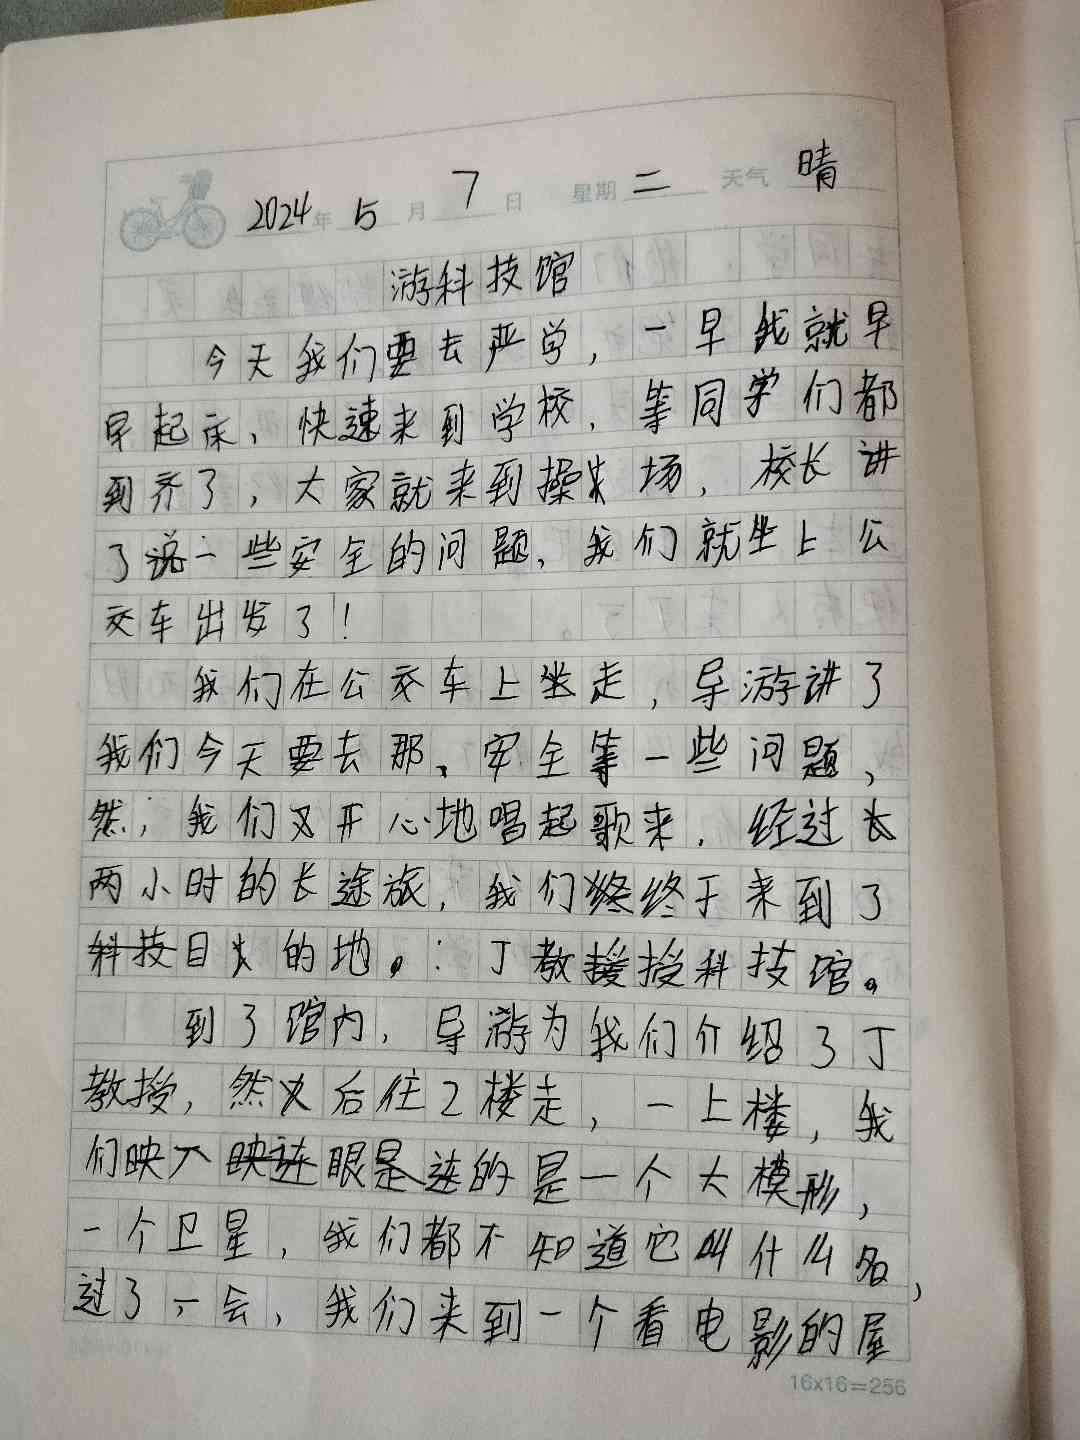 2024年 5月 7日 星期二 天气 晴
游科技馆
今天我们要去严学，一早我就早
早起床，快速来到学校，等同学们都
到齐了，大家就来到操场，校长讲
了说一些安全的问题，我们就坐上公
交车出发了！
我们在公交车上坐走，导游讲了
我们今天要去那、安全等一些问题，
然，我们又开心地唱起歌来，经过长
两小时的长途旅，我们终终于来到了
科技目的地。：丁教授授科技馆。
到了馆内，导游为我们介绍了丁
教授，然后往2楼走，一上楼，我
们映入映连眼是连的是一个大模形，
一个卫星，我们都不知道它叫什么名，
过了一会，我们来到一个看电影的屋
16x16=256